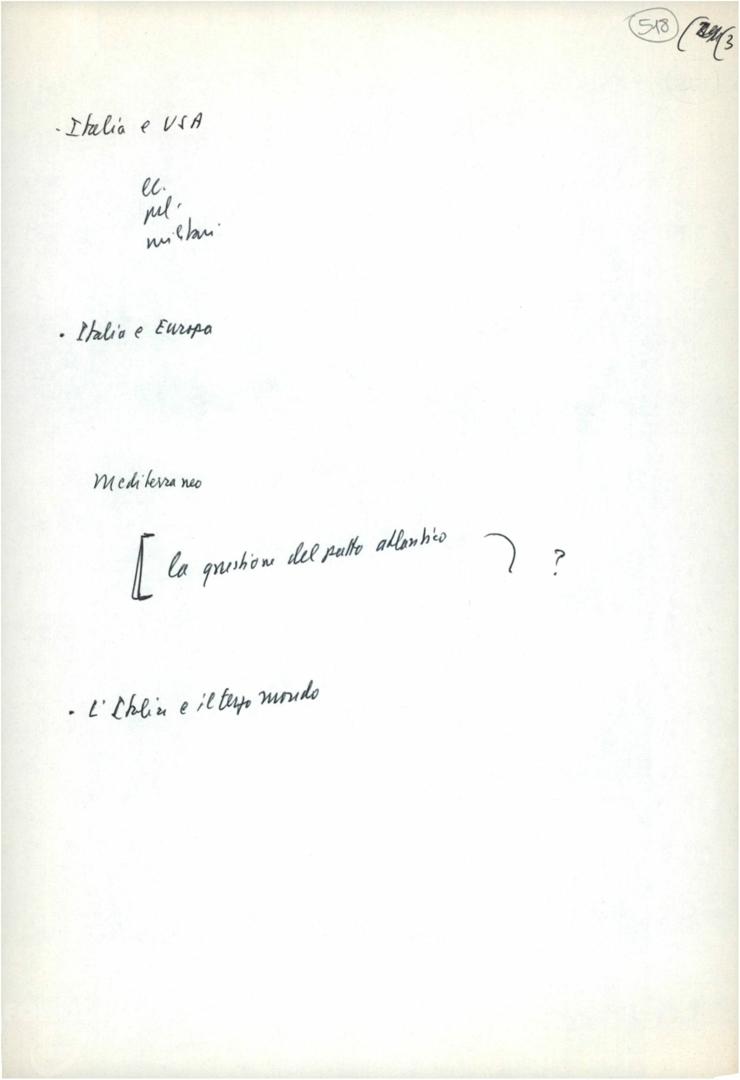 518 (3
· Italia e USA
ec.
pol.
militari
· Italia e Europa
Mediterraneo
[ la questione del patto atlantico ) ?
· L'Italia e il terzo mondo